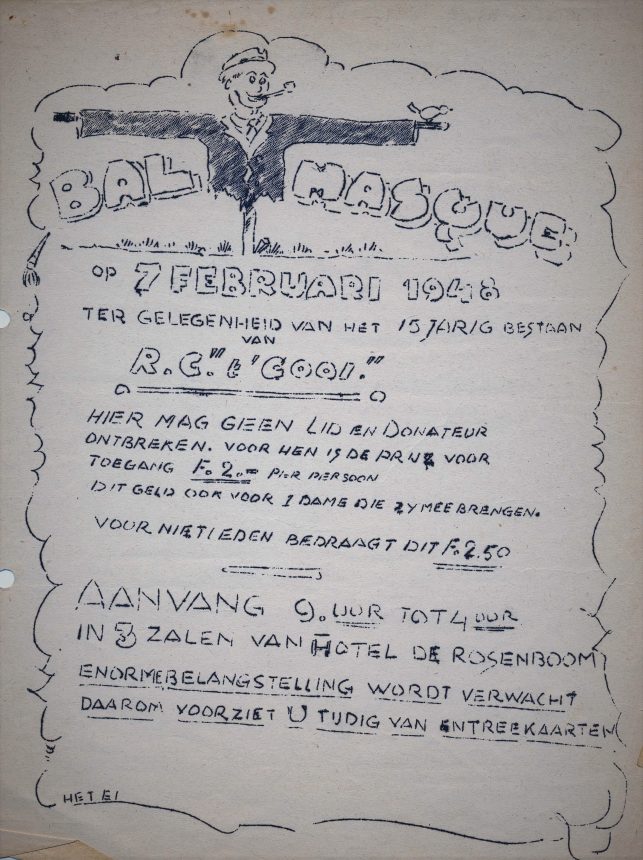 BAL MASQUE
OP 7 FEBRUARI 1948
TER GELEGENHEID VAN HET 15 JARIG BESTAAN
VAN
R.C. "t' GOOI."
HIER MAG GEEN LID EN DONATEUR
ONTBREKEN. VOOR HEN IS DE PRIJZ VOOR
TOEGANG F. 2.= PER PERSOON
DIT GELD OOK VOOR 1 DAME DIE ZY MEEBRENGEN.
VOOR NIETLEDEN BEDRAAGT DIT F. 2.50
AANVANG 9. UUR TOT 4 UUR
IN 3 ZALEN VAN HOTEL DE ROSENBOOM
ENORME BELANGSTELLING WORDT VERWACHT
DAAROM VOORZIET U TIJDIG VAN ENTREEKAARTEN
HET EI